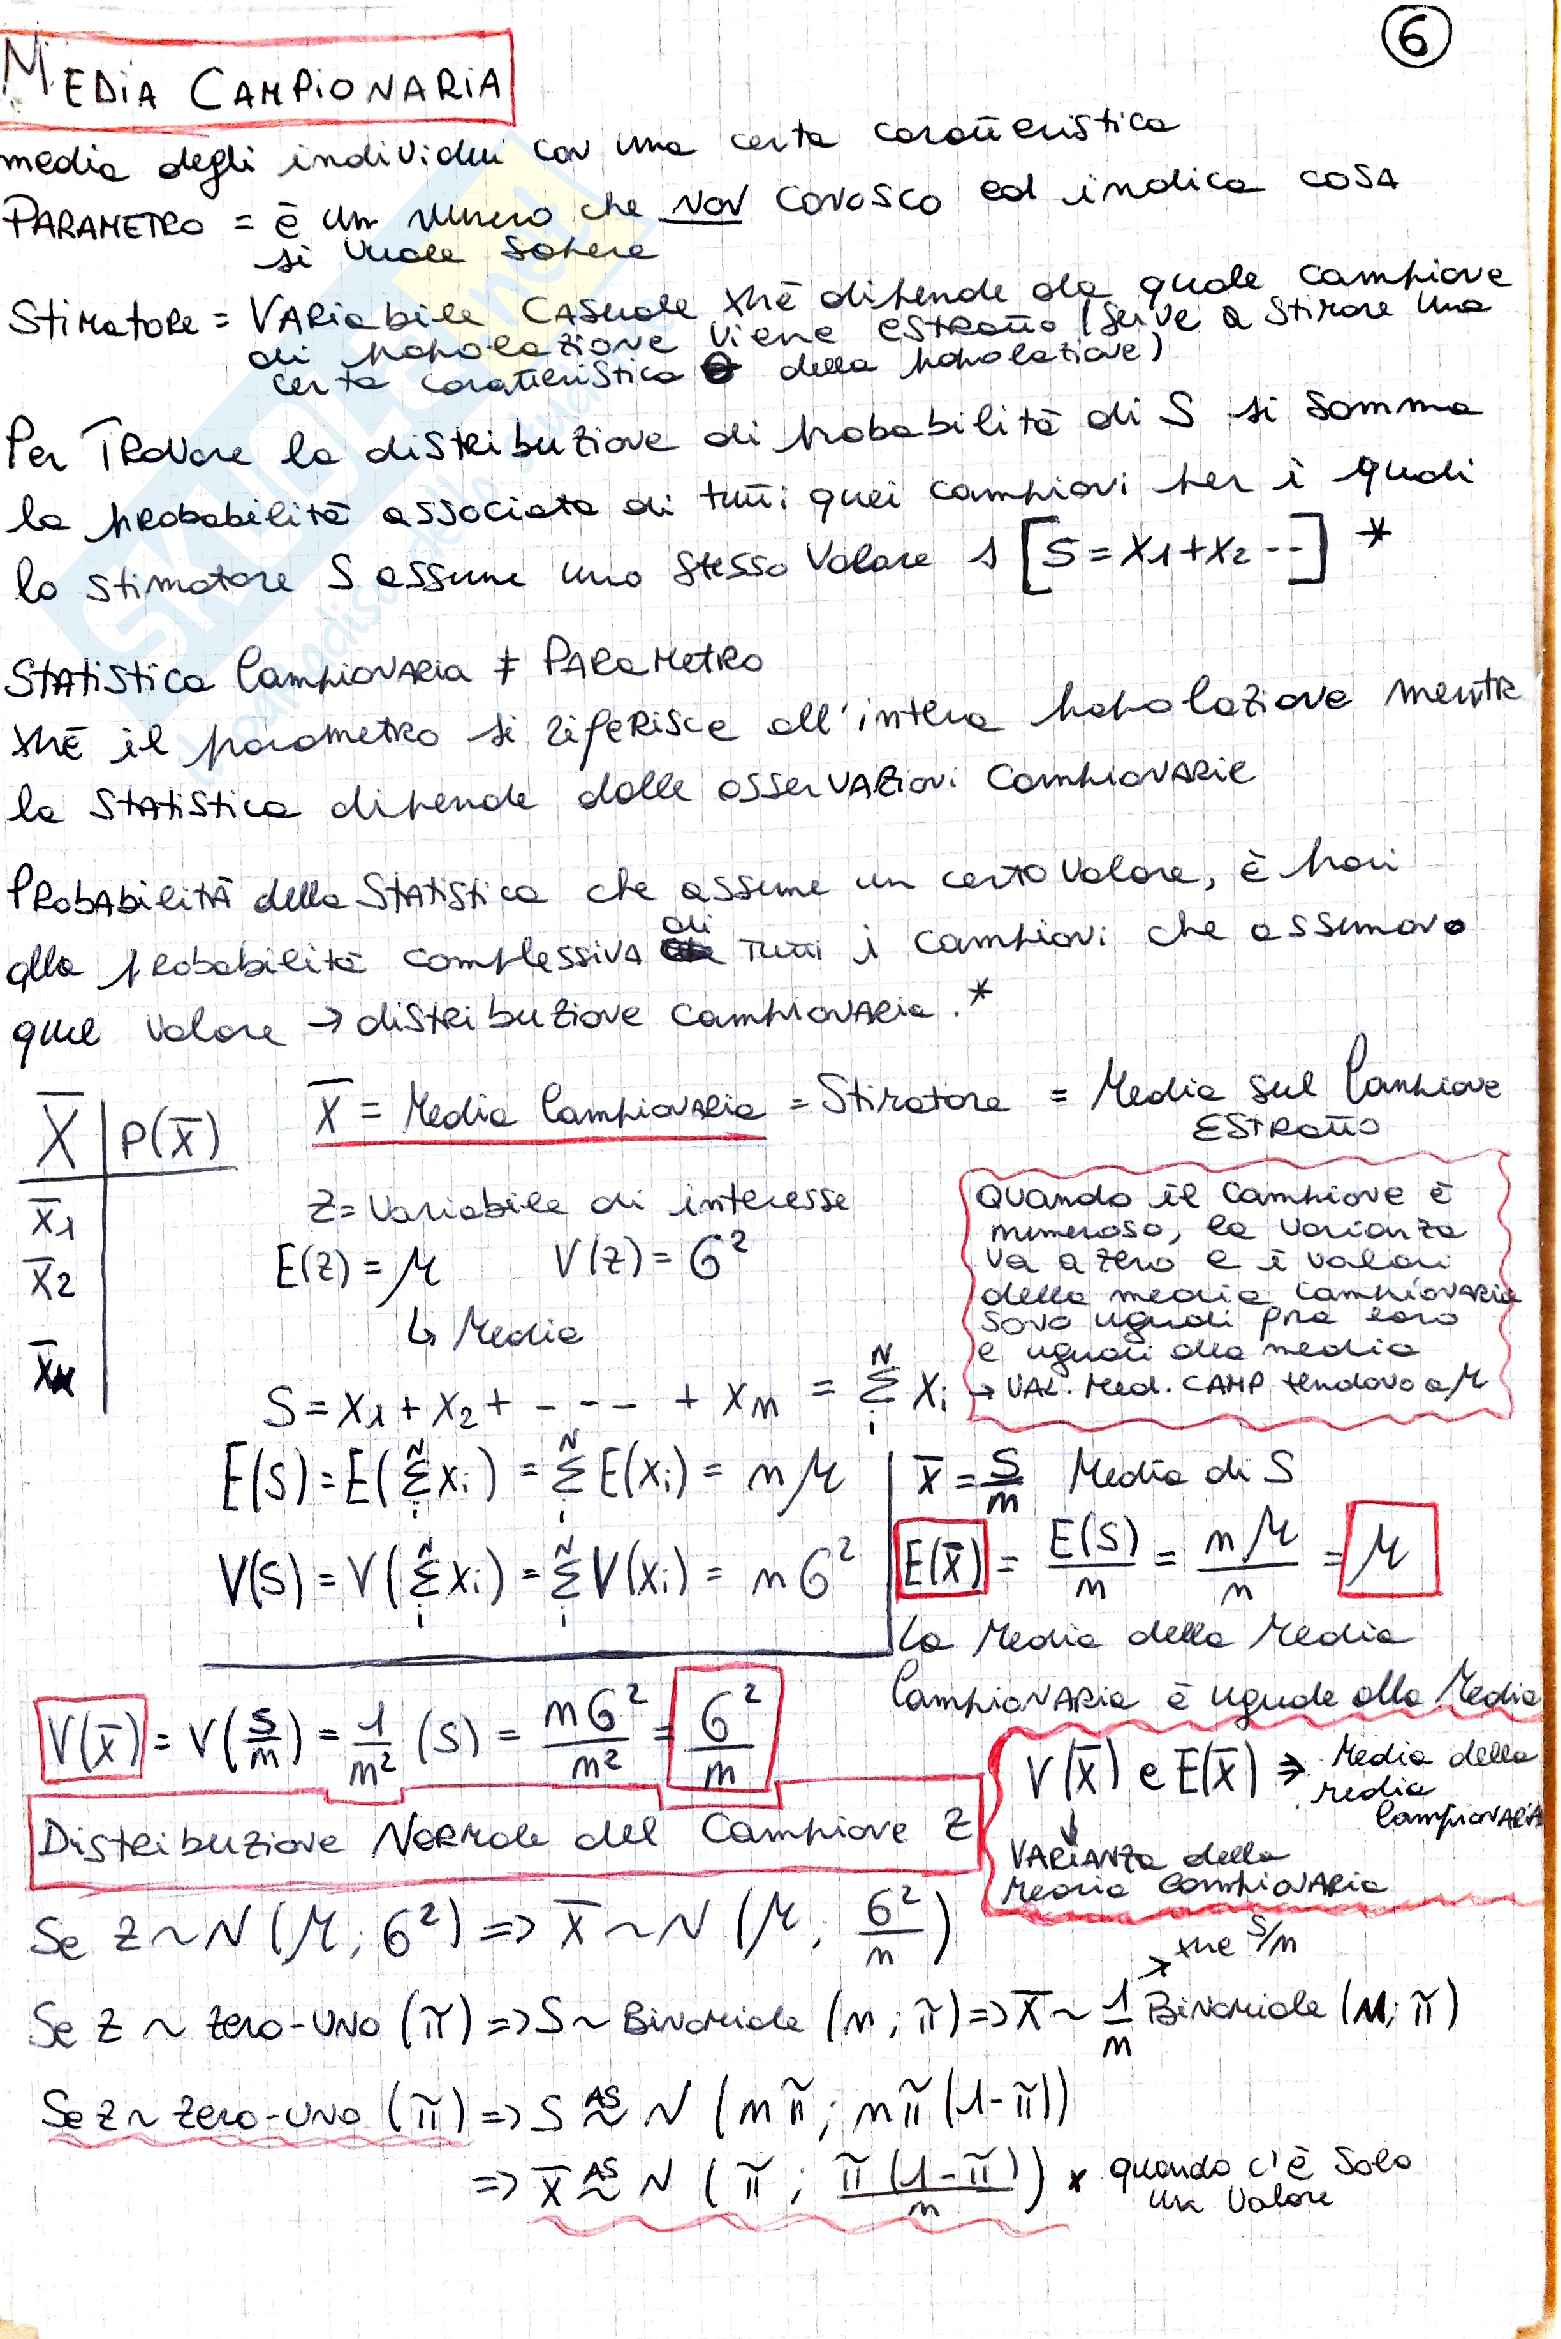 6
MEDIA CAMPIONARIA
media degli individui con una certa caratteristica
PARAMETRO = è un numero che NON conosco ed indica cosa
si vuole sapere
Stimatore = Variabile casuale xkè dipende da quale campione
di popolazione viene estratto (serve a stimare una
certa caratteristica θ della popolazione)
Per trovare la distribuzione di probabilità di S si somma
la probabilità associata di tutti quei campioni per i quali
lo stimatore S assume uno stesso valore s [S = X1 + X2 --] *
Statistica Campionaria ≠ PARAMETRO
xkè il parametro si riferisce all'intera popolazione mentre
la statistica dipende dalle osservazioni campionarie
Probabilità della statistica che assume un certo valore, è pari
alla probabilità complessiva di tutti i campioni che assumono
quel valore → distribuzione campionaria. *
X̄ | P(X̄)
x̄1
x̄2
X̄ = Media Campionaria = Stimatore = Media sul Campione
estratto
Z = Variabile di interesse
E(Z) = μ V(Z) = σ²
↳ Media
Quando il campione è
numeroso, la varianza
va a zero e i valori
della media campionaria
sono uguali fra loro
e uguali alla media
→ VAL. Med. CAMP tendono a μ
S = X1 + X2 + - - - - + Xn = Σ_i^N Xi
E(S) = E(Σ_i^N Xi) = Σ_i^N E(Xi) = nμ
V(S) = V(Σ_i^N Xi) = Σ_i^N V(Xi) = nσ²
X̄ = S/n Media di S
E(X̄) = E(S)/n = nμ/n = μ
La Media della Media
Campionaria è uguale alla Media
V(X̄) = V(S/n) = 1/n² (S) = nσ²/n² = σ²/n
V(X̄) e E(X̄) → Media della
media
Campionaria
↓
VARIANZA della
Media Campionaria
Distribuzione Normale del Campione Z
Se Z ~ N(μ; σ²) => X̄ ~ N(μ; σ²/n)
→ xke S/n
Se Z ~ Zero-Uno (π) => S ~ Binomiale (n; π) => X̄ ~ 1/n Binomiale (n; π)
Se Z ~ Zero-Uno (π) => S AS~ N (nπ; nπ(1-π))
=> X̄ AS~ N (π; π(1-π)/n) * quando c'è solo
un valore